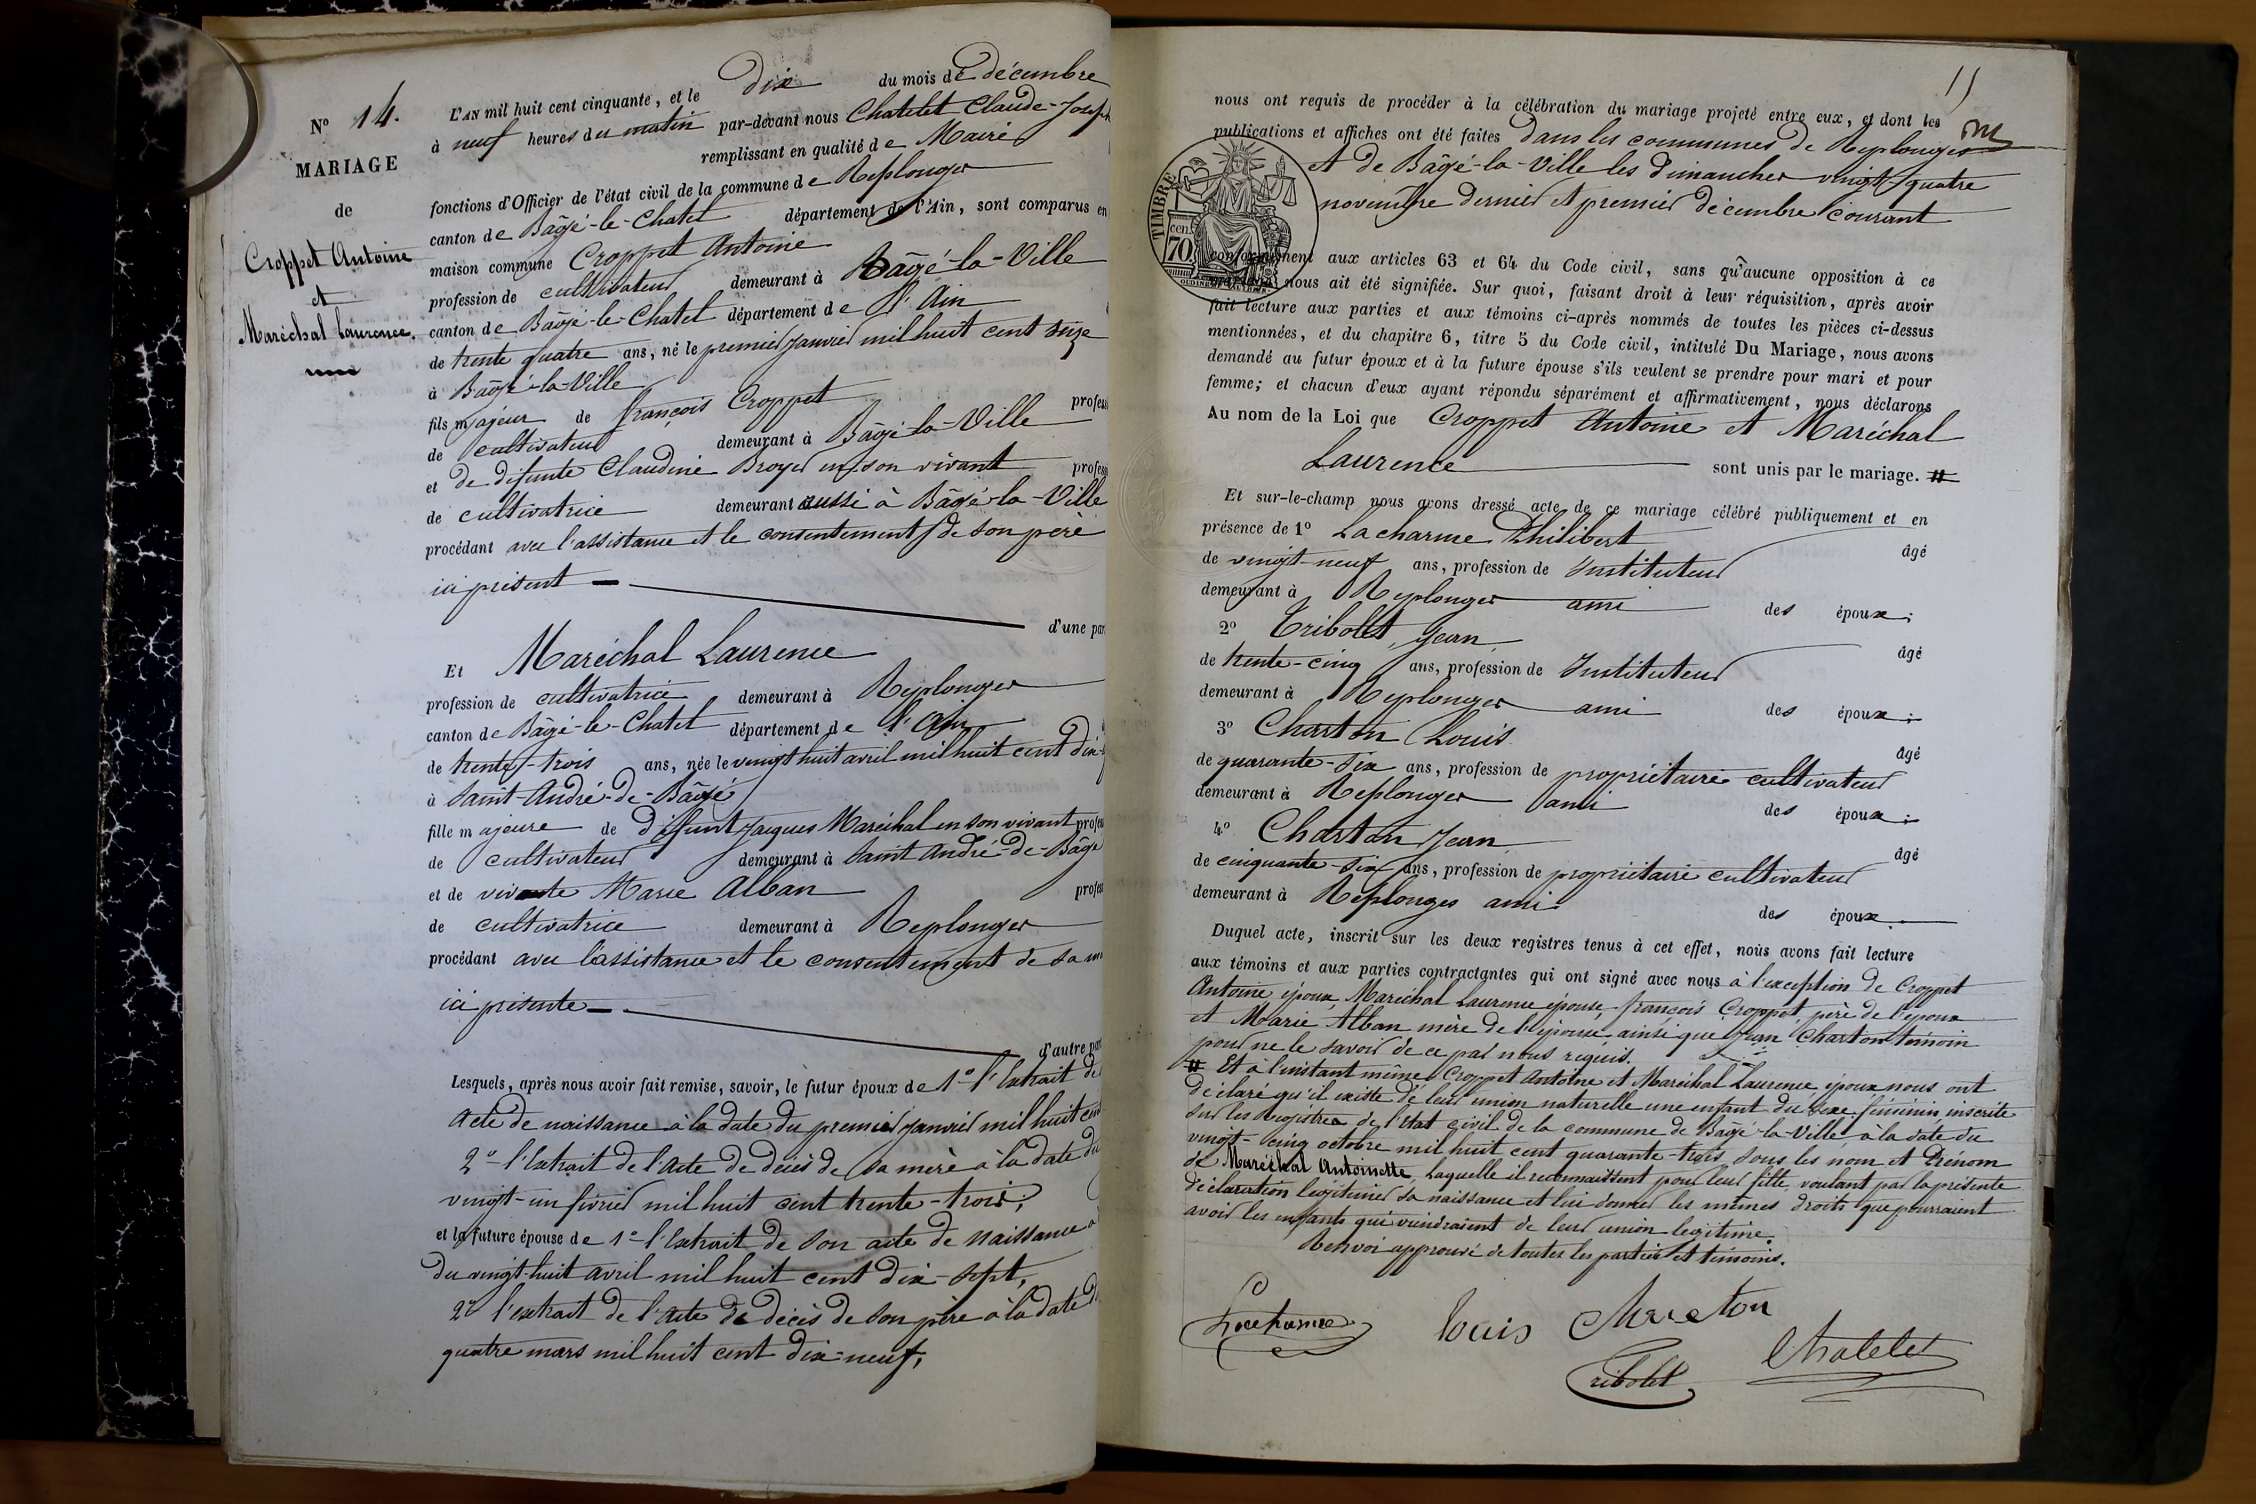 Nº 14.
MARIAGE
de
Croppet Antoine
et
Maréchal Laurence.
L'AN mil huit cent cinquante, et le dix du mois de décembre
à neuf heures du matin par-devant nous Chatelet Claude-Joseph
remplissant en qualité de Maire
fonctions d'Officier de l'état civil de la commune de Replonges
canton de Bâgé-le-Chatel département de l'Ain, sont comparus en
maison commune Croppet Antoine
profession de cultivateur demeurant à Bâgé-la-Ville
canton de Bâgé-le-Chatel département de l'Ain
de trente quatre ans, né le premier janvier mil huit cent seize
à Bâgé-la-Ville
fils majeur de françois Croppet profess
de cultivateur demeurant à Bâgé-la-Ville
et de défunte Claudine Broyer en son vivant profess
de cultivatrice demeurant aussi à Bâgé-la-Ville
procédant avec l'assistance et le consentement de son père
ici présent
d'une par
Et Maréchal Laurence
profession de cultivatrice demeurant à Replonges
canton de Bâgé-le-Chatel département de l'Ain
de trente-trois ans, née le vingt huit avril mil huit cent dix-
à Saint-André-de-Bâgé
fille majeure de défunt Jacques Maréchal en son vivant profess
de cultivateur demeurant à Saint André-de-Bâgé
et de vivante Marie Alban profess
de cultivatrice demeurant à Replonges
procédant avec l'assistance et le consentement de sa m
ici présente
d'autre part
Lesquels, après nous avoir fait remise, savoir, le futur époux de 1º l'extrait de
acte de naissance à la date du premier janvier mil huit cent
2º l'extrait de l'acte de décès de sa mère à la date du
vingt-un février mil huit cent trente-trois;
et la future épouse de 1º l'extrait de son acte de naissance a
du vingt-huit avril mil huit cent dix-sept,
2º l'extrait de l'acte de décès de son père à la date d
quatre mars mil huit cent dix-neuf,
11
nous ont requis de procéder à la célébration du mariage projeté entre eux, et dont les
publications et affiches ont été faites dans les communes de Replonges
et de Bâgé-la-Ville les dimanches vingt-quatre
novembre dernier et premier décembre courant
TIMBRE
70 cen.
conformément aux articles 63 et 64 du Code civil, sans qu'aucune opposition à ce
nous ait été signifiée. Sur quoi, faisant droit à leur réquisition, après avoir
fait lecture aux parties et aux témoins ci-après nommés de toutes les pièces ci-dessus
mentionnées, et du chapitre 6, titre 5 du Code civil, intitulé Du Mariage, nous avons
demandé au futur époux et à la future épouse s'ils veulent se prendre pour mari et pour
femme; et chacun d'eux ayant répondu séparément et affirmativement, nous déclarons
Au nom de la Loi que Croppet Antoine et Maréchal
Laurence sont unis par le mariage. #
Et sur-le-champ nous avons dressé acte de ce mariage célébré publiquement et en
présence de 1º Lacharme Philibert âgé
de vingt-neuf ans, profession de Instituteur
demeurant à Replonges ami des époux;
2º Tribolet Jean âgé
de trente-cinq ans, profession de Instituteur
demeurant à Replonges ami des époux;
3º Charton Louis âgé
de quarante-six ans, profession de propriétaire cultivateur
demeurant à Replonges ami des époux;
4º Charton Jean âgé
de cinquante-six ans, profession de propriétaire cultivateur
demeurant à Replonges ami des époux
Duquel acte, inscrit sur les deux registres tenus à cet effet, nous avons fait lecture
aux témoins et aux parties contractantes qui ont signé avec nous à l'exception de Croppet
Antoine époux, Maréchal Laurence épouse, françois Croppet, père de l'époux
et Marie Alban mère de l'épouse ainsi que Jean Charton témoin
pour ne le savoir de ce par nous requis.
# Et à l'instant même Croppet Antoine et Maréchal Laurence époux nous ont
déclaré qu'il existe de leur union naturelle une enfant du sexe féminin, inscrite
sur les Registres de l'état civil de la commune de Bâgé-la-Ville à la date du
vingt-cinq octobre mil huit cent quarante-trois sous les nom et Prénom
de Maréchal Antoinette, laquelle il reconnaissent pour leur fille, voulant par la présente
déclaration légitimer sa naissance et lui donner les mêmes droits que pourraient
avoir les enfants qui viendraient de leur union légitime.
Renvoi approuvé de toutes les parties et témoins.
Lacharme
Louis Charton
Tribolet
Chatelet